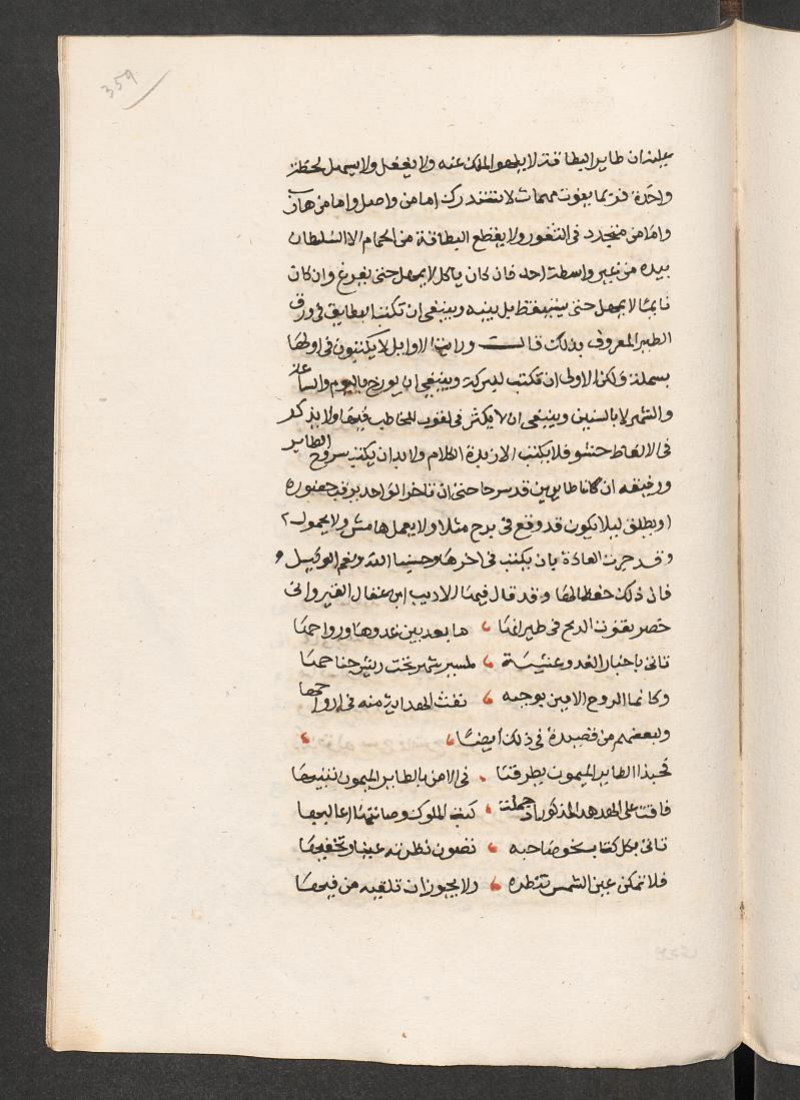 359
علينا ان طاير البطاقة لا يلهو الملك عنه ولا يغفل ولا يمهل لحظة
واحدة فربما يفوت مهمات لا تستدرك اما من واصل واما من هارب
واما من متجدد في الثغور ولا يقطع البطاقة من الحمام الا السلطان
بيده من غير واسطة احد فان كان ياكل لا يمهل حتى يفرغ وان كان
نايما لا يمهل حتى يستيقظ بل ينبه وينبغي ان تكتب البطايق في ورق
الطير المعروف بذلك قالـــت ورايت الاوايل لا يكتبون في اولها
بسملة ولكن الاولى ان تكتب للبركة وينبغي ان يورخ باليوم والساعة
والشهر لا بالسنين وينبغي ان لا يكثر في نعوت المخاطب فيها ولا يذكر
في الالفاظ حشو فلا يكتب الا زبدة الكلام ولابد ان يكتب سروح الطاير
ورفيقه ان كانا طايرين قد سرحا حتى ان تاخر الواحد يرقب حضوره
او يطلق ليلا يكون قد وقع في برج مثلا ولا يعمل هامش ولا يحمول
وقد جرت العادة بان يكتب في اخرها وحسبنا الله ونعم الوكيل و
فان ذلك حفظ لها وقد قال فيها الاديب ابن عفال القيرواني
خضر يفوت الريح في طيرانها ، ما بعد بين غدوها ورواحها
تاتي باخبار الغدو عشية ، لمسير شهر تحت ريش جناحها
وكانما الروح الامين بوحيه ، نفث الهداية منه في ارواحها
ولبعضهم من قصيدة في ذلك ايضا ، ،
فحبذا الطاير الميمون يطرقنا . في الامن بالطاير الميمون تنبيها
فاقت على الهدهد المذكور اذ حملت ، كتب الملوك وصانتها اعاليها
تاتي بكل كتاب نحو صاحبه ، تصون نظرته عينا وتخفيها
فلا تمكن عين الشمس تنظره ، ولا يجوز ان تلقيه من فيها